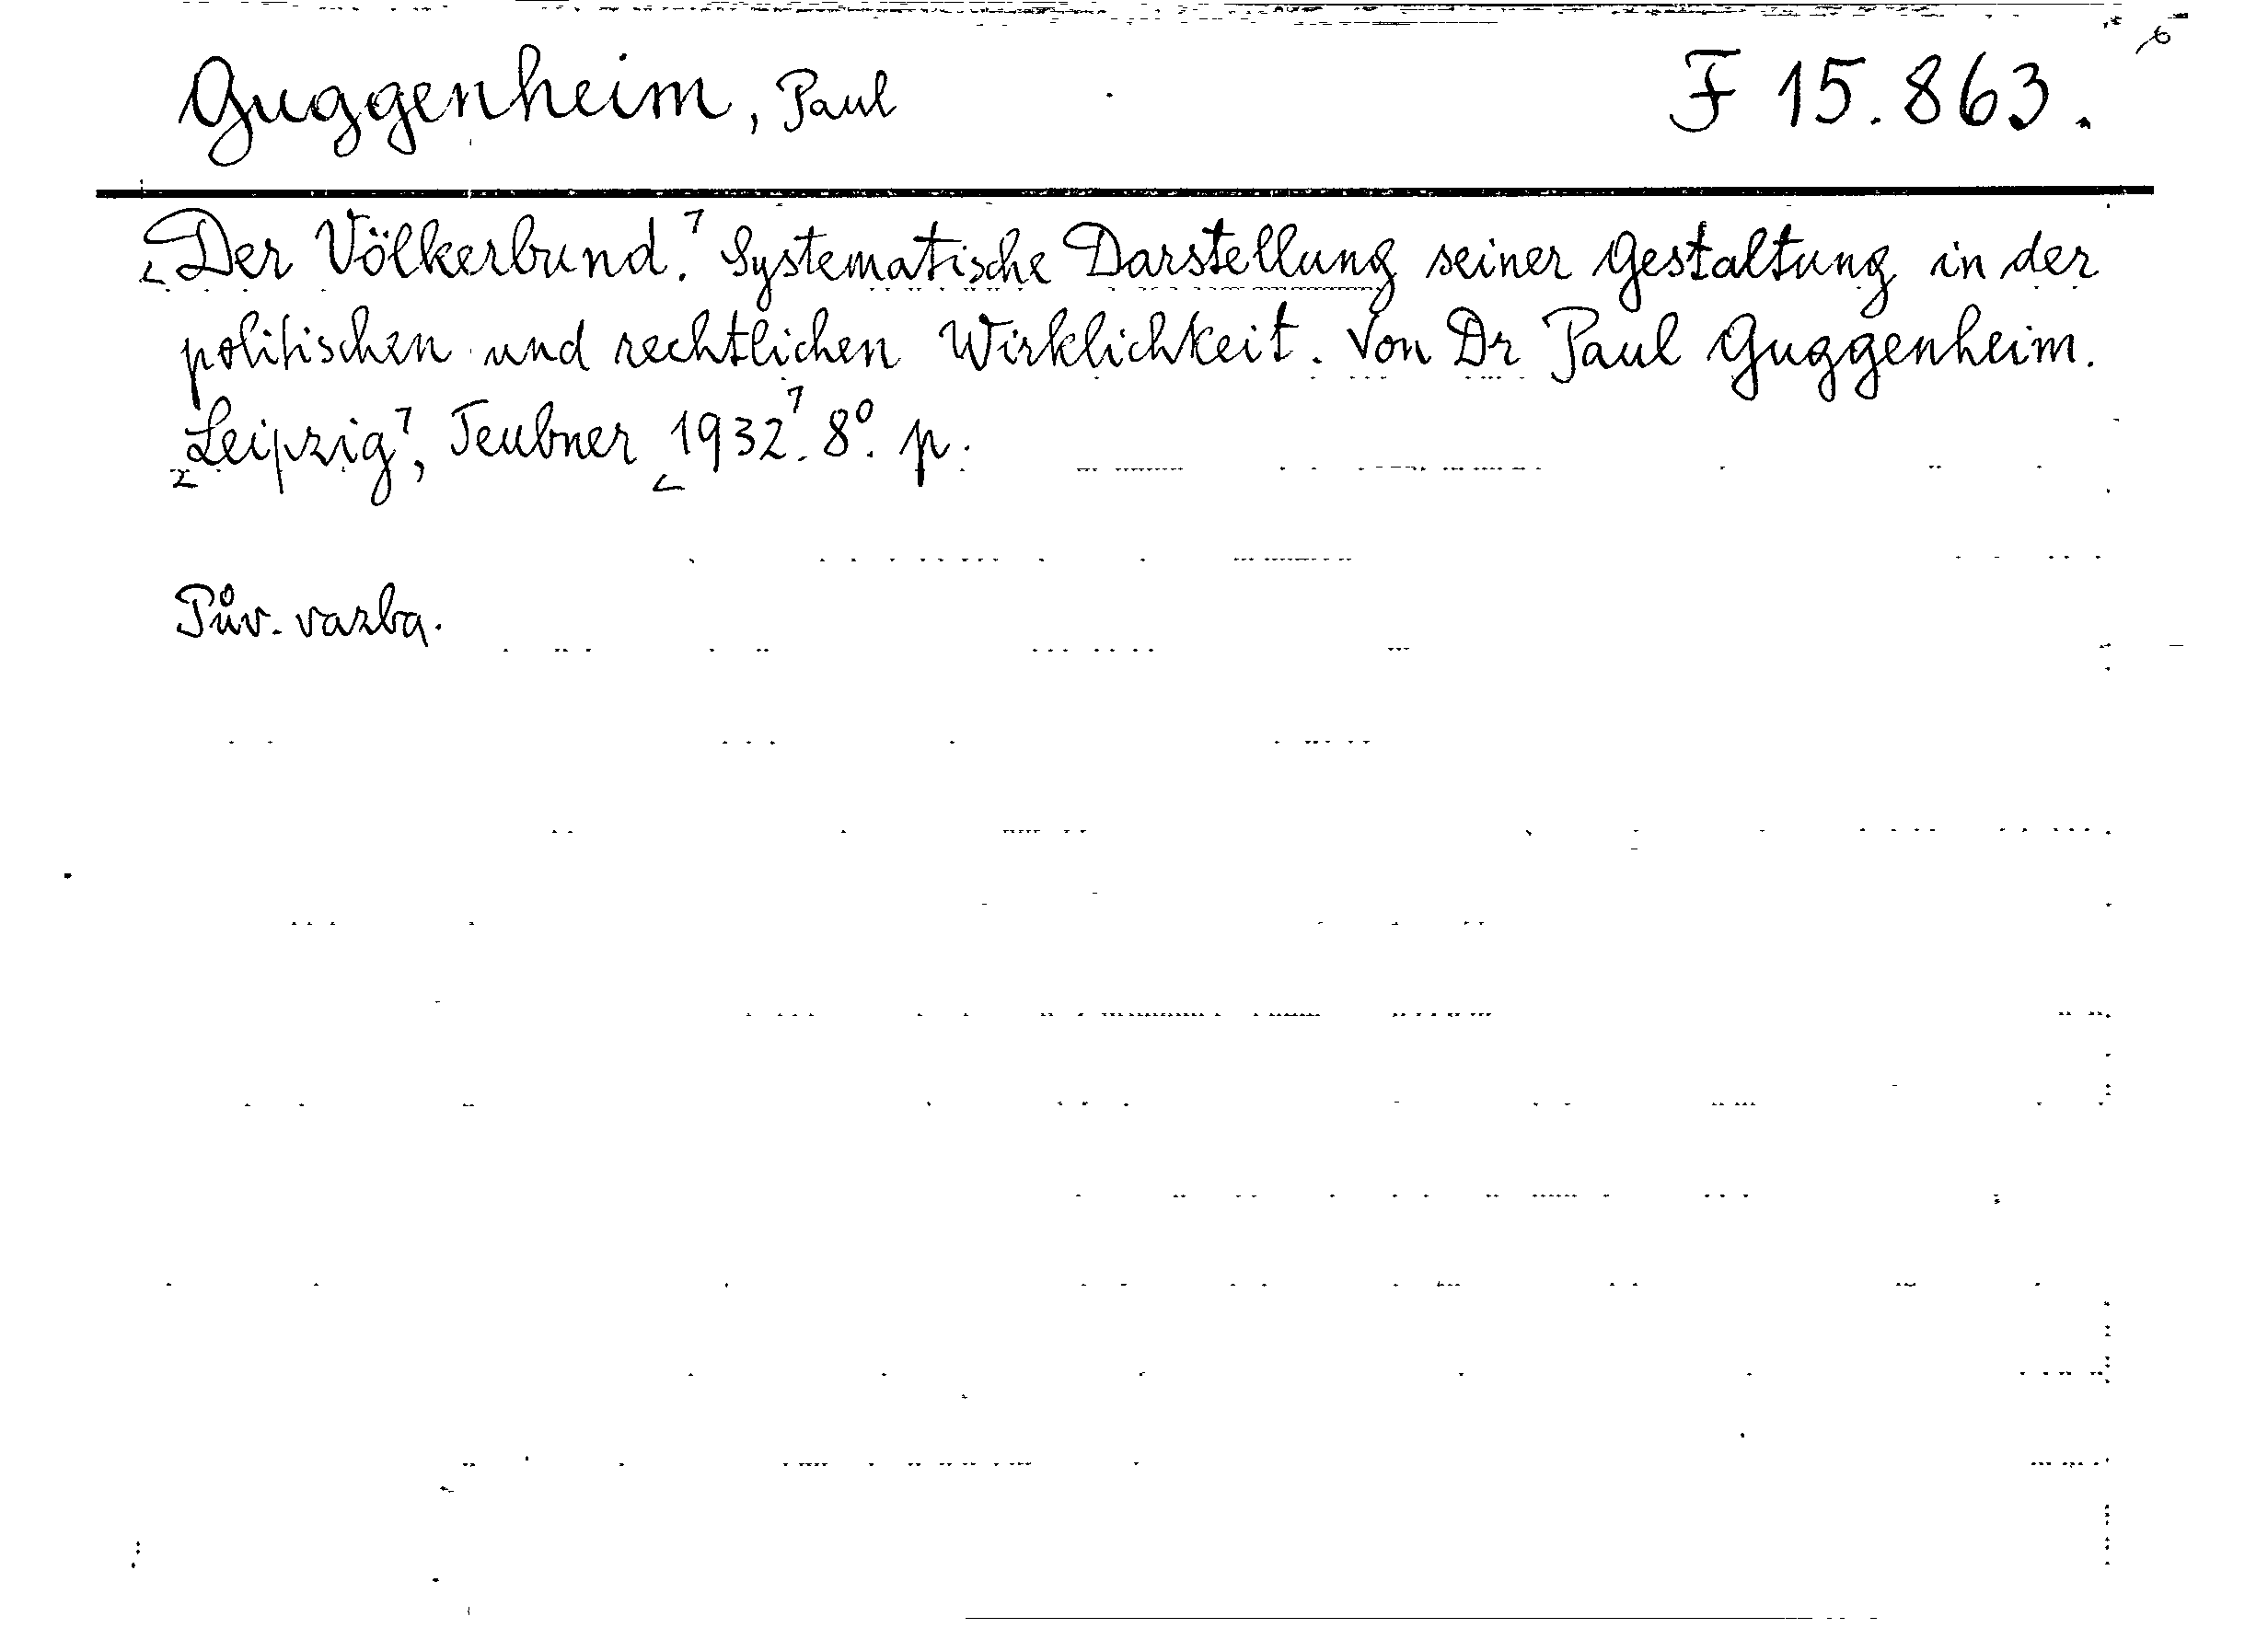 Guggenheim, Paul F 15.863.
Der Völkerbund. Systematische Darstellung seiner Gestaltung in der
politischen und rechtlichen Wirklichkeit. Von Dr Paul Guggenheim.
Leipzig, Teubner 1932. 8°. p.
Pův. vazba.